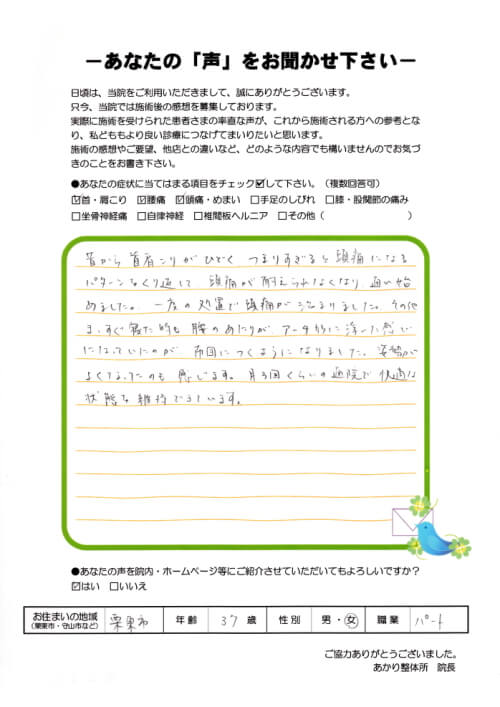 －あなたの「声」をお聞かせ下さい－
日頃は、当院をご利用いただきまして、誠にありがとうございます。
只今、当院では施術後の感想を募集しております。
実際に施術を受けられた患者さまの率直な声が、これから施術される方への参考とな
り、私どももより良い診療につなげてまいりたいと思います。
施術の感想やご要望、他店との違いなど、どのような内容でも構いませんのでお気づ
きのことをお書き下さい。
●あなたの症状に当てはまる項目をチェック☑して下さい。（複数回答可）
☑首・肩こり ☑腰痛 ☑頭痛・めまい □手足のしびれ □膝・股関節の痛み
□坐骨神経痛 □自律神経 □椎間板ヘルニア □その他（　　　）
昔から首肩こりがひどく つまりすぎると頭痛になる
パターンをくり返して 頭痛が耐えられなくなり 通い始
めました。一度の処置で頭痛が治まりました。その他
ま、すぐ寝た時も 腰のあたりが アーチ状に浮いた感じ
になっていたのが 布団につくようになりました。姿勢が
よくなったのも 感じます。月3回くらいの通院で 快適な
状態を維持できています。
●あなたの声を院内・ホームページ等にご紹介させていただいてもよろしいですか？
☑はい □いいえ
お住まいの地域 栗東市 年齢 37 歳 性別 男・女 職業 パート
（栗東市・守山市など）
ご協力ありがとうございました。
あかり整体所 院長